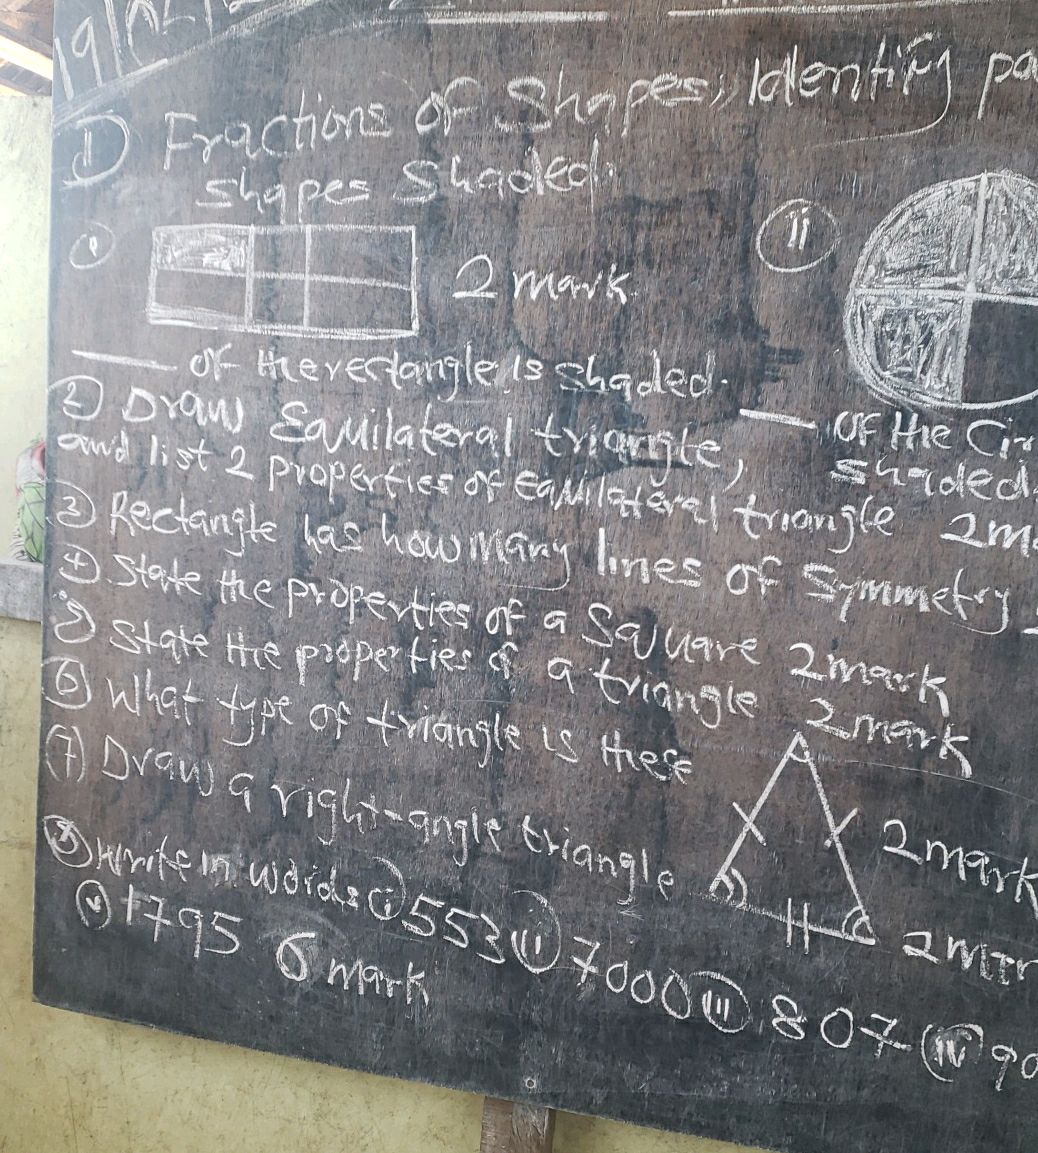 ① Fractions of Shapes,, Identify pa
shapes Shaded.
① 2 mark
ⅱ
___ of the rectangle is shaded.
___ of the Cir
shaded.
② Draw Equilateral triangle,
and list 2 properties of equilateral triangle 2m
③ Rectangle has how many lines of symmetry
④ State the properties of a Square 2mark
⑤ State the properties of a triangle 2mark
⑥ What type of triangle is these
2mark
⑦ Draw a right-angle triangle
⑧ Write in words ⓘ 553 ⓘⓘ 7000 ⓘⓘⓘ 807 (iv) 90
ⓥ 1795 6 mark